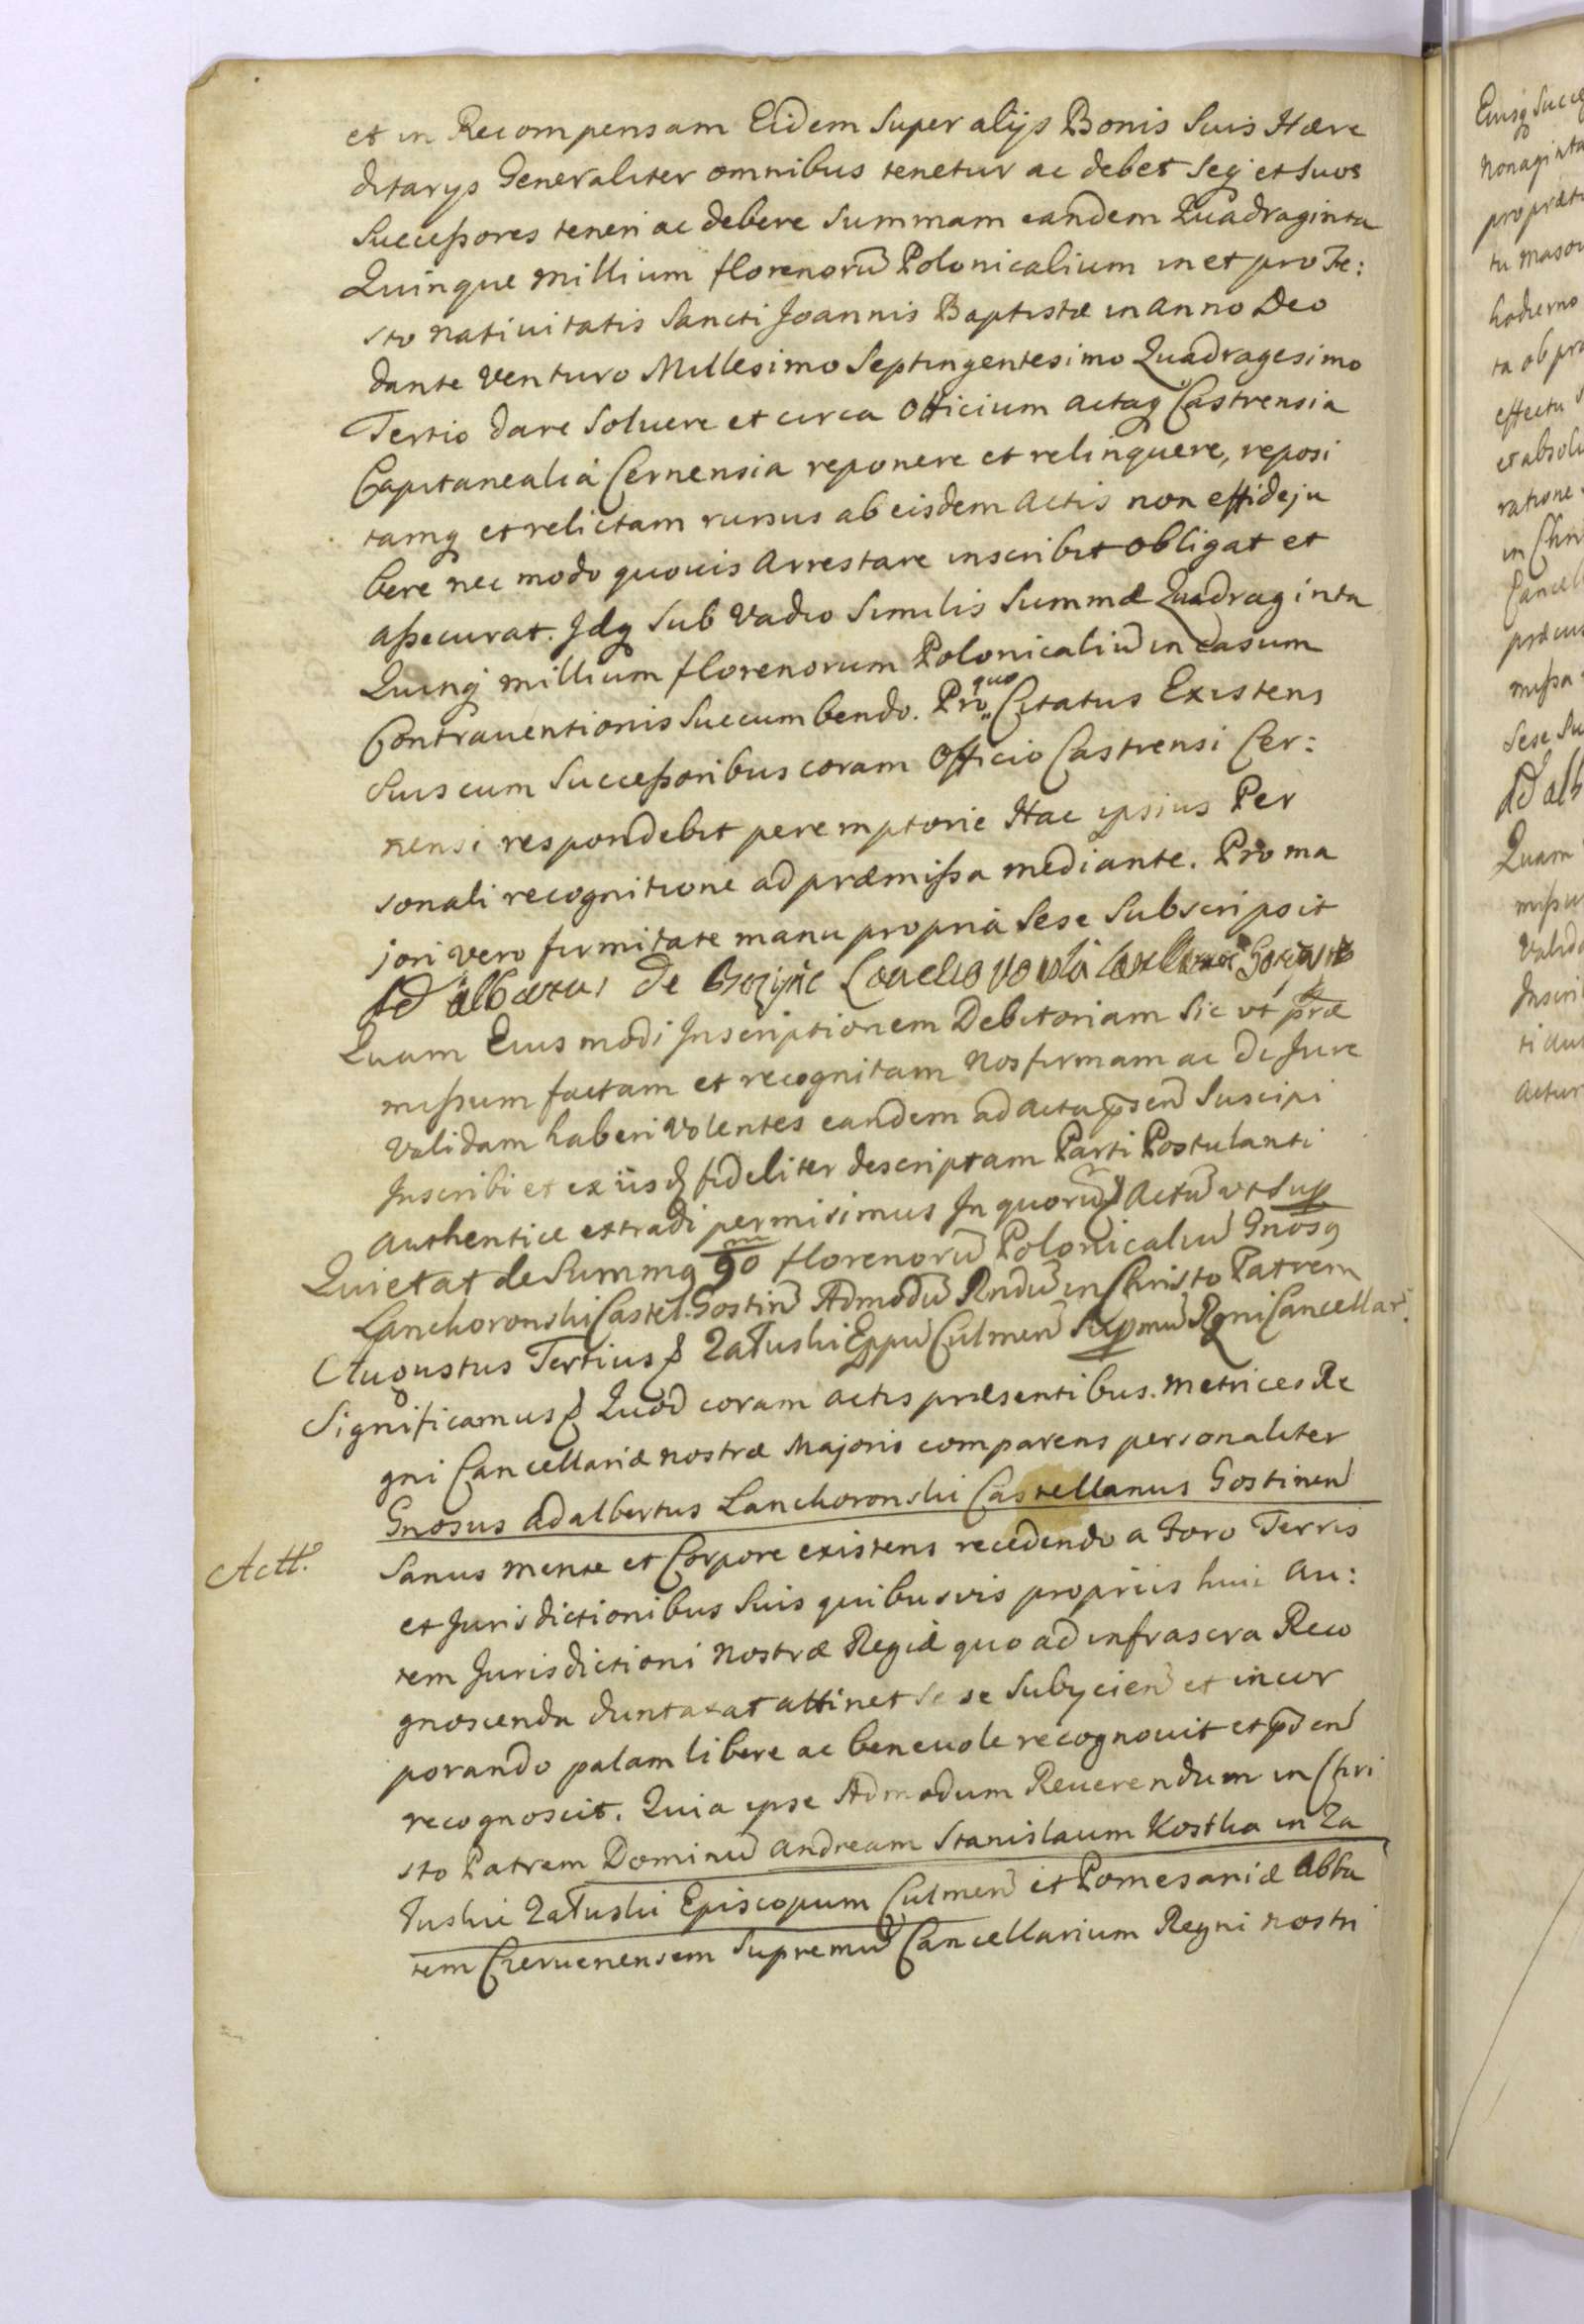 et in Recompensam Eidem Super alijs Bonis Suis Hære
ditarys Generaliter omnibus tenetur ac debet Seq et Suos
Succeßores teneri ac debere Summam eandem Quadraginta
Quinque millium florenorū Polonicalium in et pro Fe:
sto nativitatis Sancti Joannis Baptistæ in Anno Deo
dante venturo Millesimo Septingentesimo Quadragesimo
Tertio dare Soluere et circa Officium actaq Castrensia
Capitanealia Cernensia reponere et relinquere, reposi
tamq et relictam rursus ab eisdem Actis non effideju
bere nec modo quovis Arrestare inscribit obligat et
aßecurat. Jdq Sub Vadio Similis Summæ Quadraginta
Quinq millium florenorum Polonicaliū in Casum
Contrauentionis Succumbendo. Pro quo Citatus Existens
Suis cum Succeßoribus coram Officio Castrensi Cer:
nensi respondebit peremptorie Hac ipsius Per
sonali recognitione ad præmißa mediante. Pro ma
jori vero firmitate manu propria Sese Subscripsit
de
Quam Eius modi Jnscriptionem Debitoriam Sic vt præ
mißum factam et recognitam Nos firmam ac de Jure
validam haberi volentes eandem ad Acta psen Suscipi
Jnscribi et ex iisd fideliter descriptam Parti Postulanti
Authentice extradi permisimus Jn quorū Actū vt Sup
Quietat de Summa 90 m florenorū Polonicaliū Gnosq
Lanckoronski Castel. Gostin Admodū Rndū in Christo Patrem
Augustus Tertius & Załuski Eppū Culmen Supmū Rgni Cancellar.
Significamus & Quod coram actis præsentibus. metrices Re
gni Cancellariæ nostræ Majoris comparens personaliter
Gnosus Adalbertus Lanckoronski Castellanus Gostinen
Actt.
Sanus mente et Corpore existens recedendo a Foro Terris
et Jurisdictionibus Suis quibusvis propriis huic au:
tem Jurisdictioni nostræ Regiæ quo ad infrascra Reco
gnoscenda duntaxat attinet Se se Subycien et incor
porando palam libere ac beneuole recognouit et psen
recognoscit. Quia ipse Admodum Reuerendum in Chri
sto Patrem Dominū Andream Stanislaum Kostka in Za
łuskie Załuski Episcopum Culmen et Pomesaniæ Abba
tem Czeruenensem Supremū Cancellarium Regni nostri